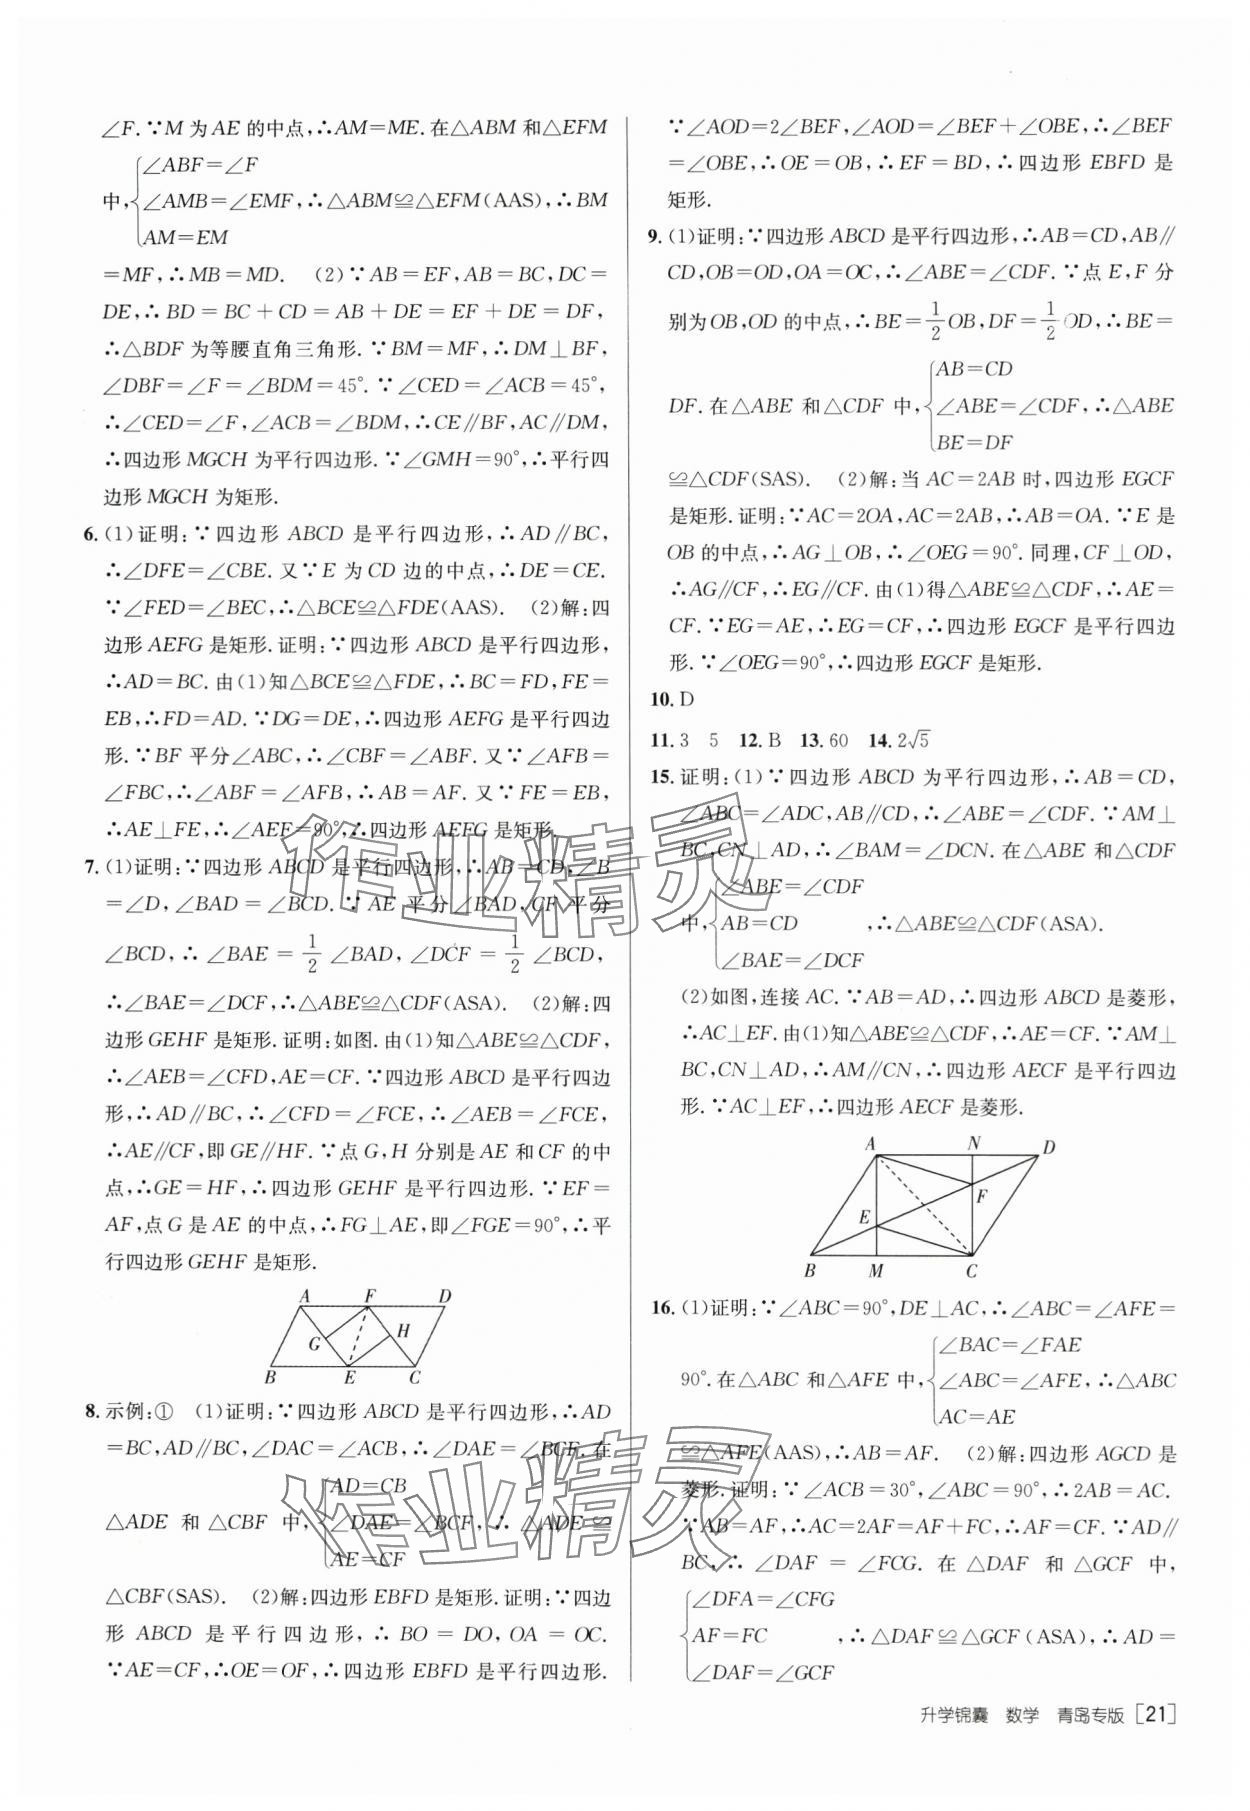 ∠F.∵M为AE的中点,∴AM=ME.在△ABM和△EFM
∠ABF=∠F
中,∠AMB=∠EMF,∴△ABM≌△EFM(AAS),∴BM
AM=EM
=MF,∴MB=MD. (2)∵AB=EF,AB=BC,DC=
DE,∴BD=BC+CD=AB+DE=EF+DE=DF,
∴△BDF为等腰直角三角形.∵BM=MF,∴DM⊥BF,
∠DBF=∠F=∠BDM=45°.∵∠CED=∠ACB=45°,
∴∠CED=∠F,∠ACB=∠BDM,∴CE∥BF,AC∥DM,
∴四边形MGCH为平行四边形.∵∠GMH=90°,∴平行四
边形MGCH为矩形.
6.(1)证明:∵四边形ABCD是平行四边形,∴AD∥BC,
∴∠DFE=∠CBE.又∵E为CD边的中点,∴DE=CE.
∵∠FED=∠BEC,∴△BCE≌△FDE(AAS). (2)解:四
边形AEFG是矩形.证明:∵四边形ABCD是平行四边形,
∴AD=BC.由(1)知△BCE≌△FDE,∴BC=FD,FE=
EB,∴FD=AD.∵DG=DE,∴四边形AEFG是平行四边
形.∵BF平分∠ABC,∴∠CBF=∠ABF.又∵∠AFB=
∠FBC,∴∠ABF=∠AFB,∴AB=AF.又∵FE=EB,
∴AE⊥FE,∴∠AEF=90°,∴四边形AEFG是矩形.
7.(1)证明:∵四边形ABCD是平行四边形,∴AB=CD,∠B
=∠D,∠BAD=∠BCD.∵AE平分∠BAD,CF平分
∠BCD,∴∠BAE=1/2∠BAD,∠DCF=1/2∠BCD,
∴∠BAE=∠DCF,∴△ABE≌△CDF(ASA). (2)解:四
边形GEHF是矩形.证明:如图.由(1)知△ABE≌△CDF,
∴∠AEB=∠CFD,AE=CF.∵四边形ABCD是平行四边
形,∴AD∥BC,∴∠CFD=∠FCE,∴∠AEB=∠FCE,
∴AE∥CF,即GE∥HF.∵点G,H分别是AE和CF的中
点,∴GE=HF,∴四边形GEHF是平行四边形.∵EF=
AF,点G是AE的中点,∴FG⊥AE,即∠FGE=90°,∴平
行四边形GEHF是矩形.
A F D
G H
B E C
8.示例:① (1)证明:∵四边形ABCD是平行四边形,∴AD
=BC,AD∥BC,∠DAC=∠ACB,∴∠DAE=∠BCF.在
AD=CB
△ADE和△CBF中,∠DAE=∠BCF,∴△ADE≌
AE=CF
△CBF(SAS). (2)解:四边形EBFD是矩形.证明:∵四边
形ABCD是平行四边形,∴BO=DO,OA=OC.
∵AE=CF,∴OE=OF,∴四边形EBFD是平行四边形.
∵∠AOD=2∠BEF,∠AOD=∠BEF+∠OBE,∴∠BEF
=∠OBE,∴OE=OB,∴EF=BD,∴四边形EBFD是
矩形.
9.(1)证明:∵四边形ABCD是平行四边形,∴AB=CD,AB∥
CD,OB=OD,OA=OC,∴∠ABE=∠CDF.∵点E,F分
别为OB,OD的中点,∴BE=1/2OB,DF=1/2OD,∴BE=
AB=CD
DF.在△ABE和△CDF中,∠ABE=∠CDF,∴△ABE
BE=DF
≌△CDF(SAS). (2)解:当AC=2AB时,四边形EGCF
是矩形.证明:∵AC=2OA,AC=2AB,∴AB=OA.∵E是
OB的中点,∴AG⊥OB,∴∠OEG=90°.同理,CF⊥OD,
∴AG∥CF,∴EG∥CF.由(1)得△ABE≌△CDF,∴AE=
CF.∵EG=AE,∴EG=CF,∴四边形EGCF是平行四边
形.∵∠OEG=90°,∴四边形EGCF是矩形.
10.D
11.3 5 12.B 13.60 14.2√5
15.证明:(1)∵四边形ABCD为平行四边形,∴AB=CD,
∠ABC=∠ADC,AB∥CD,∴∠ABE=∠CDF.∵AM⊥
BC,CN⊥AD,∴∠BAM=∠DCN.在△ABE和△CDF
∠ABE=∠CDF
中,AB=CD ,∴△ABE≌△CDF(ASA).
∠BAE=∠DCF
(2)如图,连接AC.∵AB=AD,∴四边形ABCD是菱形,
∴AC⊥EF.由(1)知△ABE≌△CDF,∴AE=CF.∵AM⊥
BC,CN⊥AD,∴AM∥CN,∴四边形AECF是平行四边
形.∵AC⊥EF,∴四边形AECF是菱形.
A N D
F
E
B M C
16.(1)证明:∵∠ABC=90°,DE⊥AC,∴∠ABC=∠AFE=
∠BAC=∠FAE
90°.在△ABC和△AFE中,∠ABC=∠AFE,∴△ABC
AC=AE
≌△AFE(AAS),∴AB=AF. (2)解:四边形AGCD是
菱形.证明:∵∠ACB=30°,∠ABC=90°,∴2AB=AC.
∵AB=AF,∴AC=2AF=AF+FC,∴AF=CF.∵AD∥
BC,∴∠DAF=∠FCG.在△DAF和△GCF中,
∠DFA=∠CFG
AF=FC ,∴△DAF≌△GCF(ASA),∴AD=
∠DAF=∠GCF
升学锦囊 数学 青岛专版 [21]
作业精灵
作业精灵